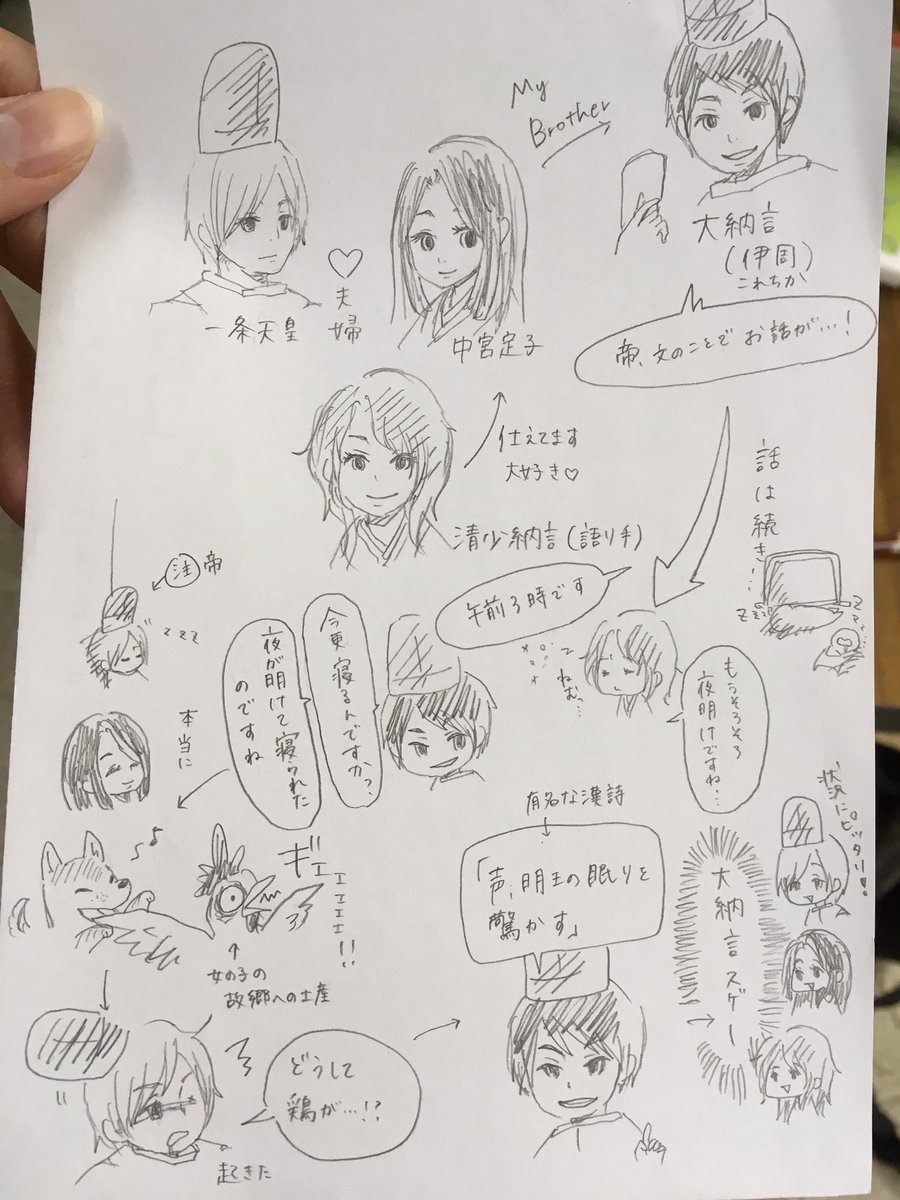 My
Brother
一条天皇
夫婦
中宮定子
大納言
(伊周)
これちか
帝、文のことでお話が…!
仕えてます
大好き♡
清少納言(語り手)
話は続き…
午前3時です
ねむ…
zzz…
もうそろそろ
夜明けですね…
注 帝
zzz
今更寝るんですか?
夜が明けて寝られた
のですね
本当に
♪
ギエエエエエ!!
女の子の
故郷への土産
どうして
鶏が…!?
起きた
有名な漢詩
「声、明王の眠りを
驚かす」
大納言スゲー
状況にピッタリ!!